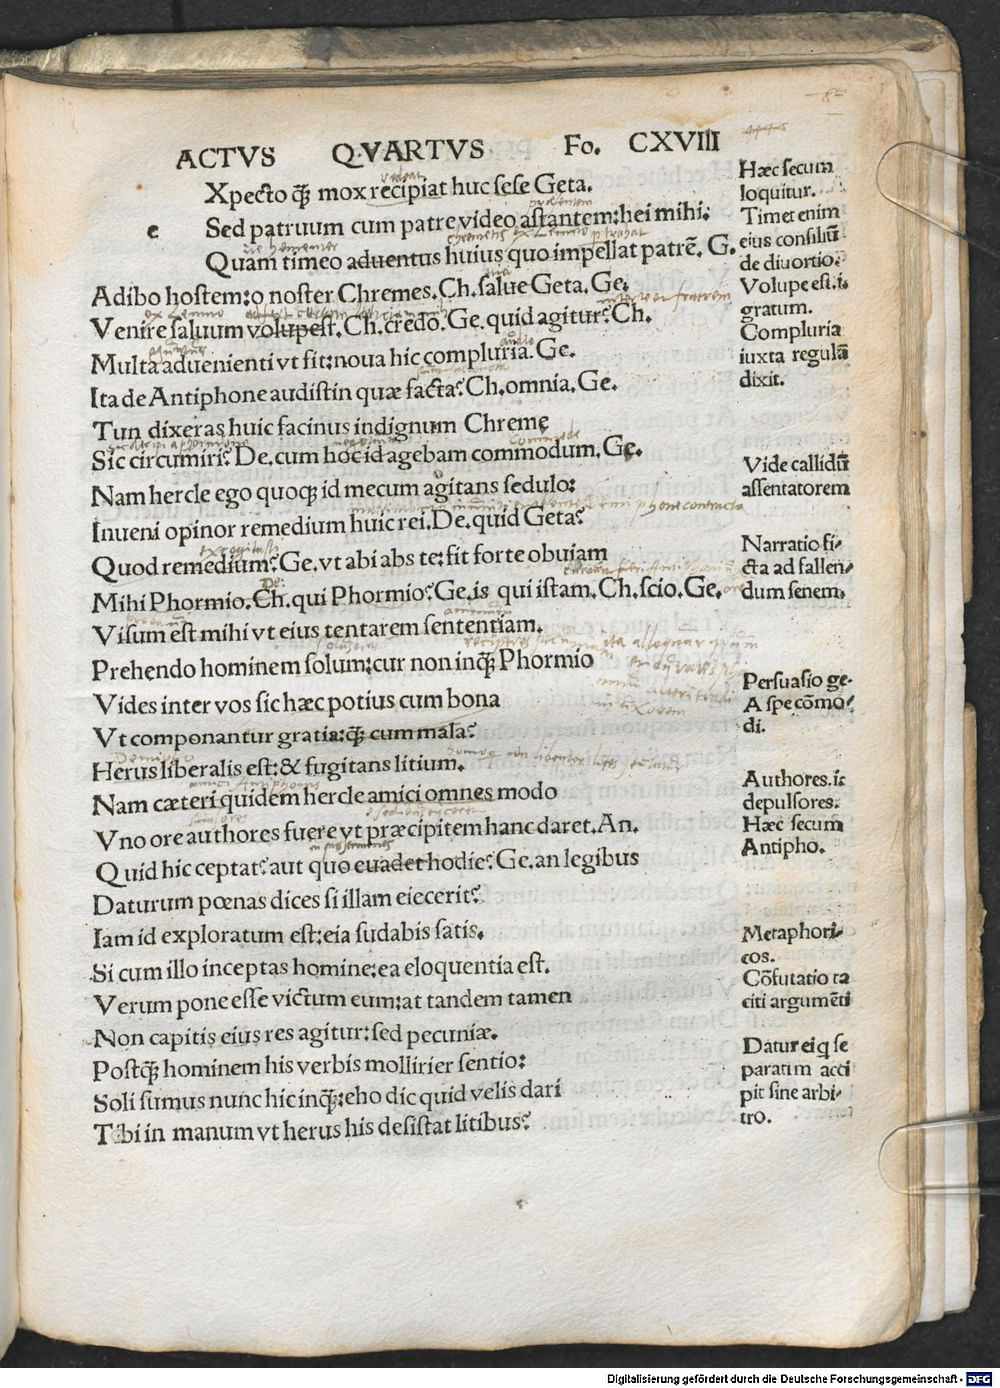 ACTVS QVARTVS Fo. CXVIII
Xpecto q̃ȝ mox recipiat huc sese Geta.
e Sed patruum cum patre video astantem: hei mihi.
Quam timeo aduentus huius quo impellat patrẽ. G.
Adibo hostem: o noster Chremes. Ch. salue Geta. Ge.
Venire saluum volupest. Ch. credo. Ge. quid agitur? Ch.
Multa aduenienti vt fit: noua hic compluria. Ge.
Ita de Antiphone audistin quæ facta? Ch. omnia. Ge.
Tun dixeras huic facinus indignum Chreme
Sic circumiri? De. cum hoc id agebam commodum. Ge.
Nam hercle ego quoqȝ id mecum agitans sedulo:
Inueni opinor remedium huic rei. De. quid Geta?
Quod remedium? Ge. vt abi abs te: fit forte obuiam
Mihi Phormio. Ch. qui Phormio? Ge. is qui istam. Ch. scio. Ge.
Visum est mihi vt eius tentarem sententiam.
Prehendo hominem solum: cur non inq̃ȝ Phormio
Vides inter vos sic hæc potius cum bona
Vt componantur gratia: q̃ȝ cum mala?
Herus liberalis est: & fugitans litium.
Nam cæteri quidem hercle amici omnes modo
Vno ore authores fuere vt præcipitem hanc daret. An.
Quid hic ceptat? aut quo euadet hodie? Ge. an legibus
Daturum pœnas dices si illam eiecerit?
Iam id exploratum est: eia sudabis satis.
Si cum illo inceptas homine: ea eloquentia est.
Verum pone esse victum eum: at tandem tamen
Non capitis eius res agitur: sed pecuniæ.
Postq̃ȝ hominem his verbis mollirier sentio:
Soli sumus nunc hic inq̃ȝ: eho dic quid velis dari
Tibi in manum vt herus his desistat litibus?
Hæc secum
loquitur.
Timet enim
eius consiliũ
de diuortio.
Volupe est. i.
gratum.
Compluria
iuxta regulã
dixit.
Vide callidũ
assentatorem
Narratio fi-
cta ad fallen-
dum senem.
Persuasio ge.
A spe cõmo-
di.
Authores. i:
depulsores.
Hæc secum
Antipho.
Metaphori-
cos.
Cõfutatio ta
citi argumẽti
Datur ei q se
paratim acci
pit sine arbi-
tro.
Digitalisierung gefördert durch die Deutsche Forschungsgemeinschaft - DFG